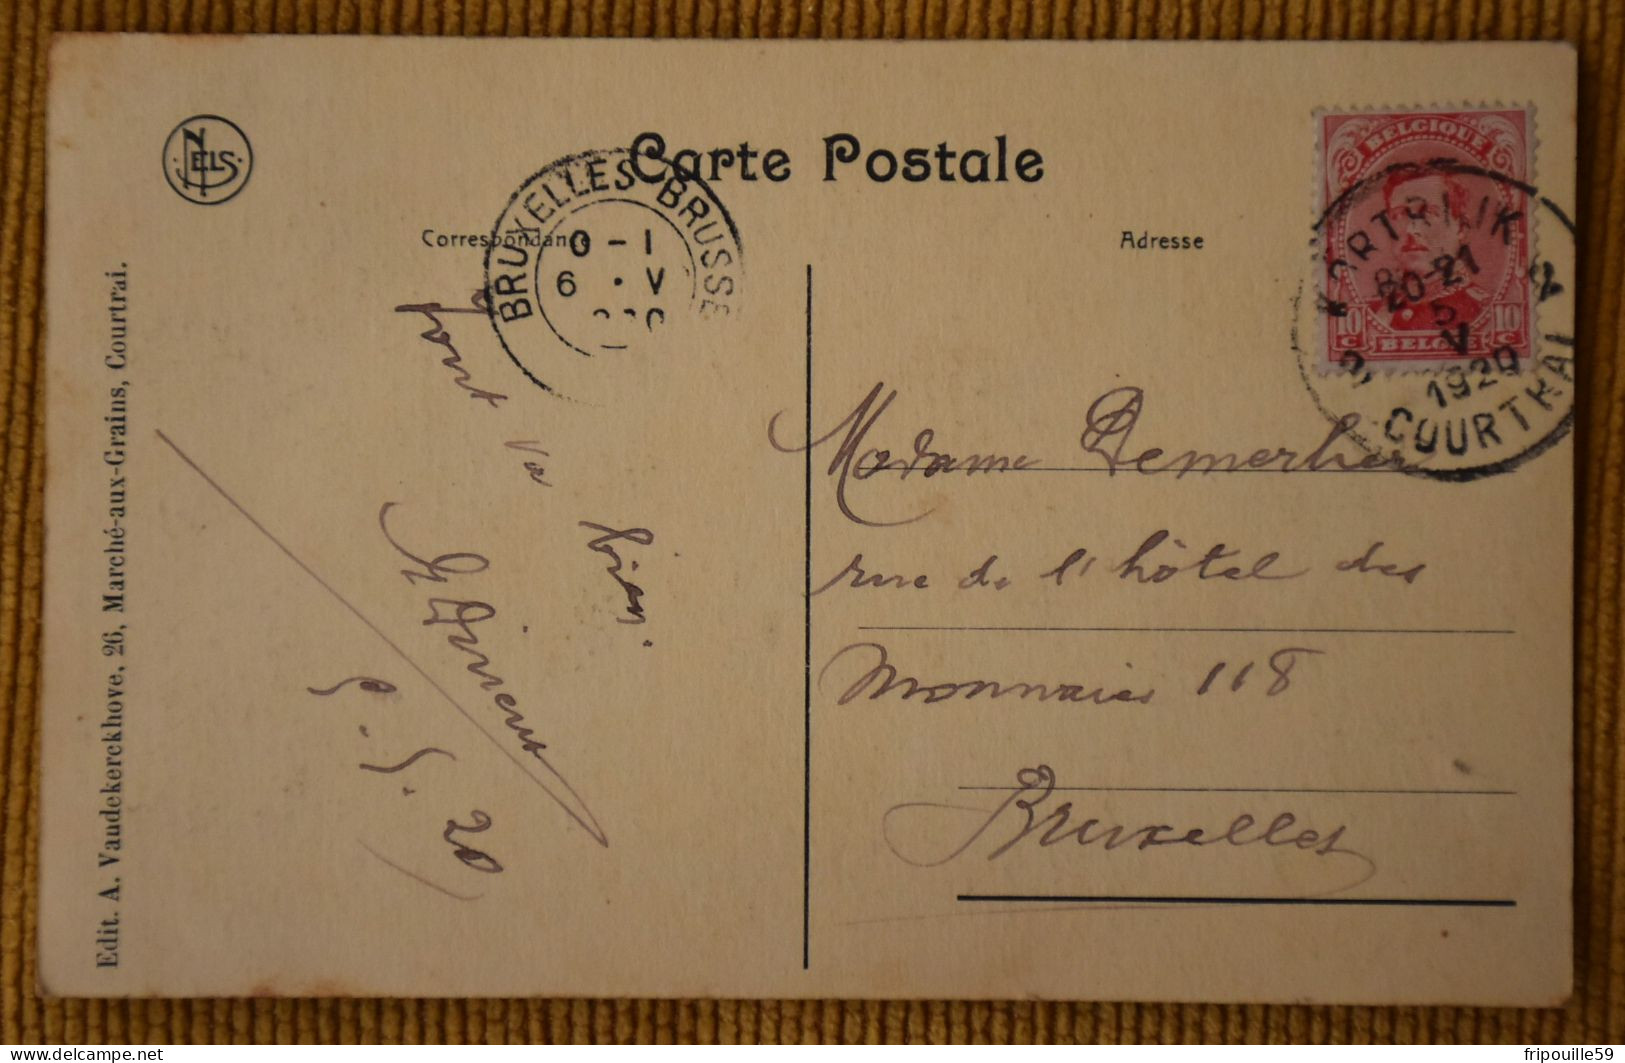 NELS
Carte Postale
Correspondance
Adresse
BRUXELLES BRUSSE
0 - 1
6 · V
BELGIQUE
10 C 10 C
BELGIE
KORTRIJK 2
20-21
5
V
1920
COURTRAI
Tout va
bien.
5. 5. 20
Madame
rue de l'hôtel des
Monnaies 118
Bruxelles
Edit. A. Vaudekerckhove, 26, Marché-aux-Grains, Courtrai.
fripouille59